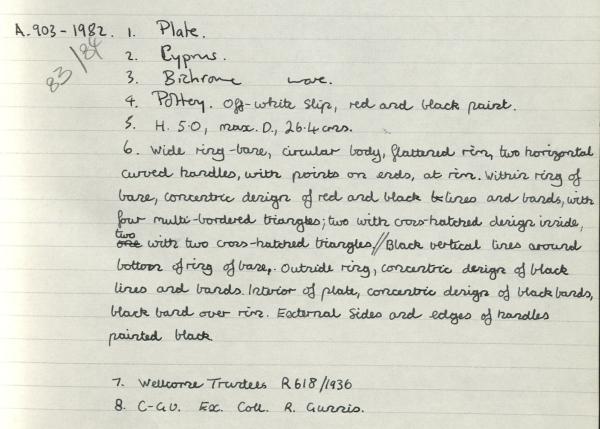 A.903-1982. 1. Plate.
83/84
2. Cyprus.
3. Bichrome ware.
4. Pottery. Off-white slip, red and black paint.
5. H. 5.0, max. D., 26.4 cms.
6. Wide ring-base, circular body, flattened rim, two horizontal
curved handles, with points on ends, at rim. Within ring of
base, concentric design of red and black lines and bands, with
four multi-bordered triangles; two with cross-hatched design inside,
two
one with two cross-hatched triangles.// Black vertical lines around
bottom of ring of base,. Outside ring, concentric design of black
lines and bands. Interior of plate, concentric design of black bands,
black band over rim. External sides and edges of handles
painted black.
7. Wellcome Trustees R618/1936
8. C-GU. Ex. Coll. R. Gunnis.